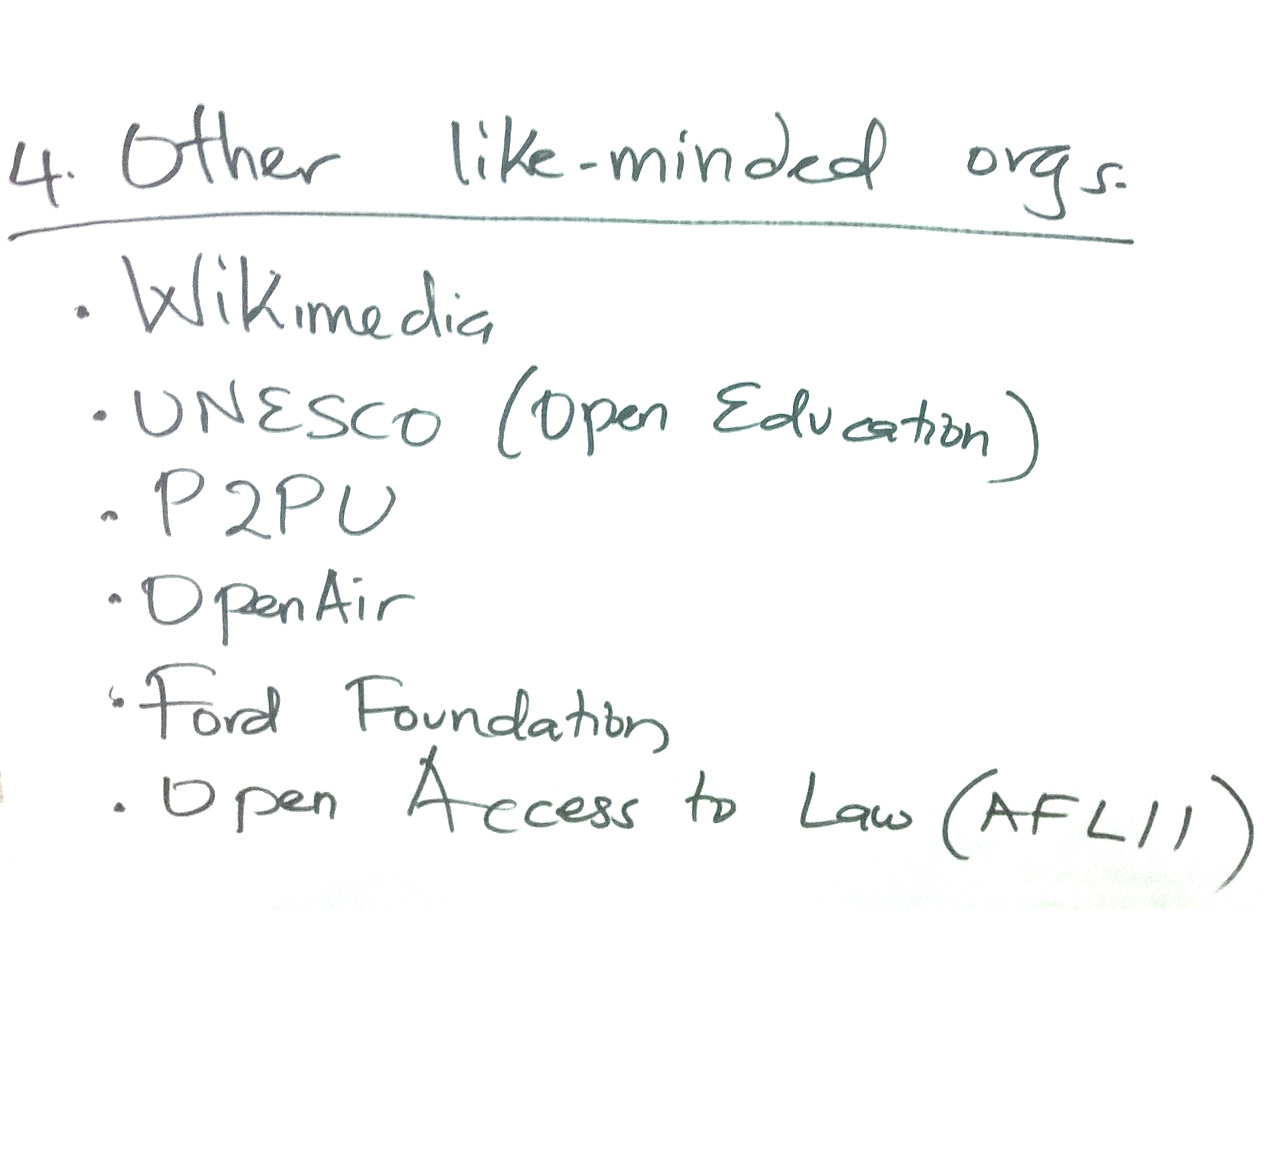 4. Other like-minded orgs.
· Wikimedia
· UNESCO (Open Education)
· P2PU
· OpenAir
· Ford Foundation
· Open Access to Law (AFLII)